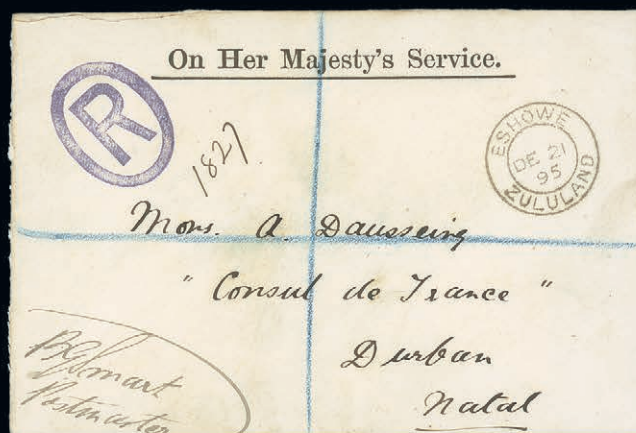 On Her Majesty's Service.
R
1827
ESHOWE
DE 21
95
ZULULAND
Mons. A
"Consul de France"
Durban
Natal
Smart
Postmaster